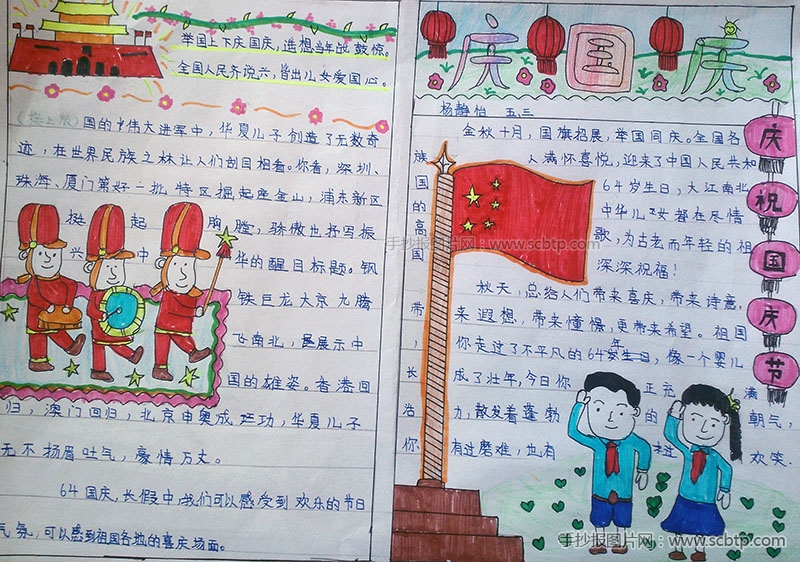 举国上下庆国庆，遥想当年战鼓惊。
全国人民齐说兴，皆出儿女爱国心。
(接上版) 国的伟大进军中，华夏儿子创造了无数奇
迹，在世界民族之林让人们刮目相看。你看，深圳、
珠海、厦门第好一批特区掘起座金山，浦东新区
挺起胸膛，骄傲也抒写振
兴中华的醒目标题。钢
铁巨龙大京九腾
飞南北，展示中
国的雄姿。香港回
归，澳门回归，北京申奥成功，华夏儿子
无不扬眉吐气，豪情万丈。
64国庆，长假中，我们可以感受到欢乐的节日
气氛，可以感到祖国各地的喜庆场面。
庆国庆
杨静怡 五三
金秋十月，国旗招展，举国同庆。全国各
族人满怀喜悦，迎来了中国人民共和
国64岁生日，大江南北
的中华儿女都在尽情
高歌，为古老而年轻的祖
国深深祝福！
秋天，总给人们带来喜庆，带来诗意，
带来遐想，带来憧憬，更带来希望。祖国
，你走过了不平凡的64年岁生日，像一个婴儿
长成了壮年，今日你正充满
活力，散发着蓬勃的朝气，
你有过磨难，也有过欢笑.
庆祝国庆节
手抄报图片网：www.scbtp.com
手抄报图片网：www.scbtp.com